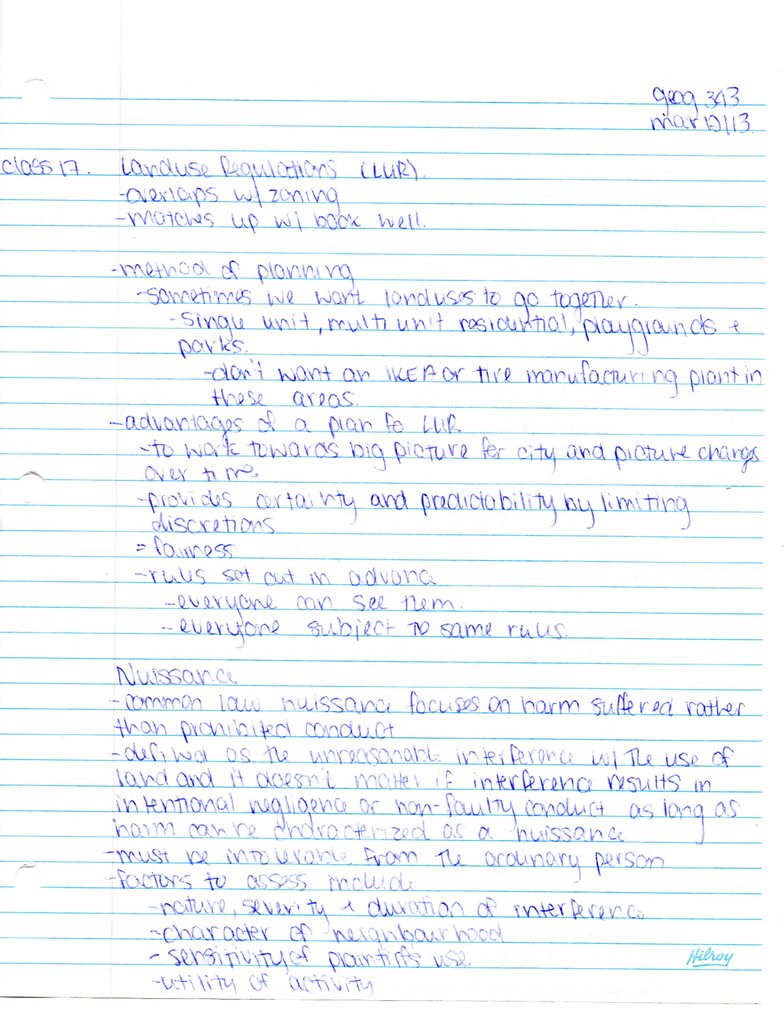 geog 343
mar 12/13
class 17. Landuse Regulations (LUR).
-overlaps w/ zoning
-matches up w/ book well.
-method of planning
-sometimes we want landuses to go together.
-single unit, multi unit residential, playgrounds +
parks.
-don't want an IKEA or tire manufacturing plant in
these areas.
-advantages of a plan fo LUR
-to work towards big picture for city and picture changes
over time
-provides certainty and predictability by limiting
discretions
= fairness
-rules set out in advance
-everyone can see them.
-everyone subject to same rules.
Nuissance
-common law nuissance focuses on harm suffered rather
than prohibited conduct
-defined as the unreasonable interference w/ the use of
land and it doesn't matter if interference results in
intentional negligence or non-faulty conduct as long as
harm can be characterized as a nuissance
-must be intolerable from the ordinary person
-factors to assess include
-nature, severity + duration of interference
-character of neighbourhood
-sensitivity of plaintiffs use
-utility of activity
Hilroy